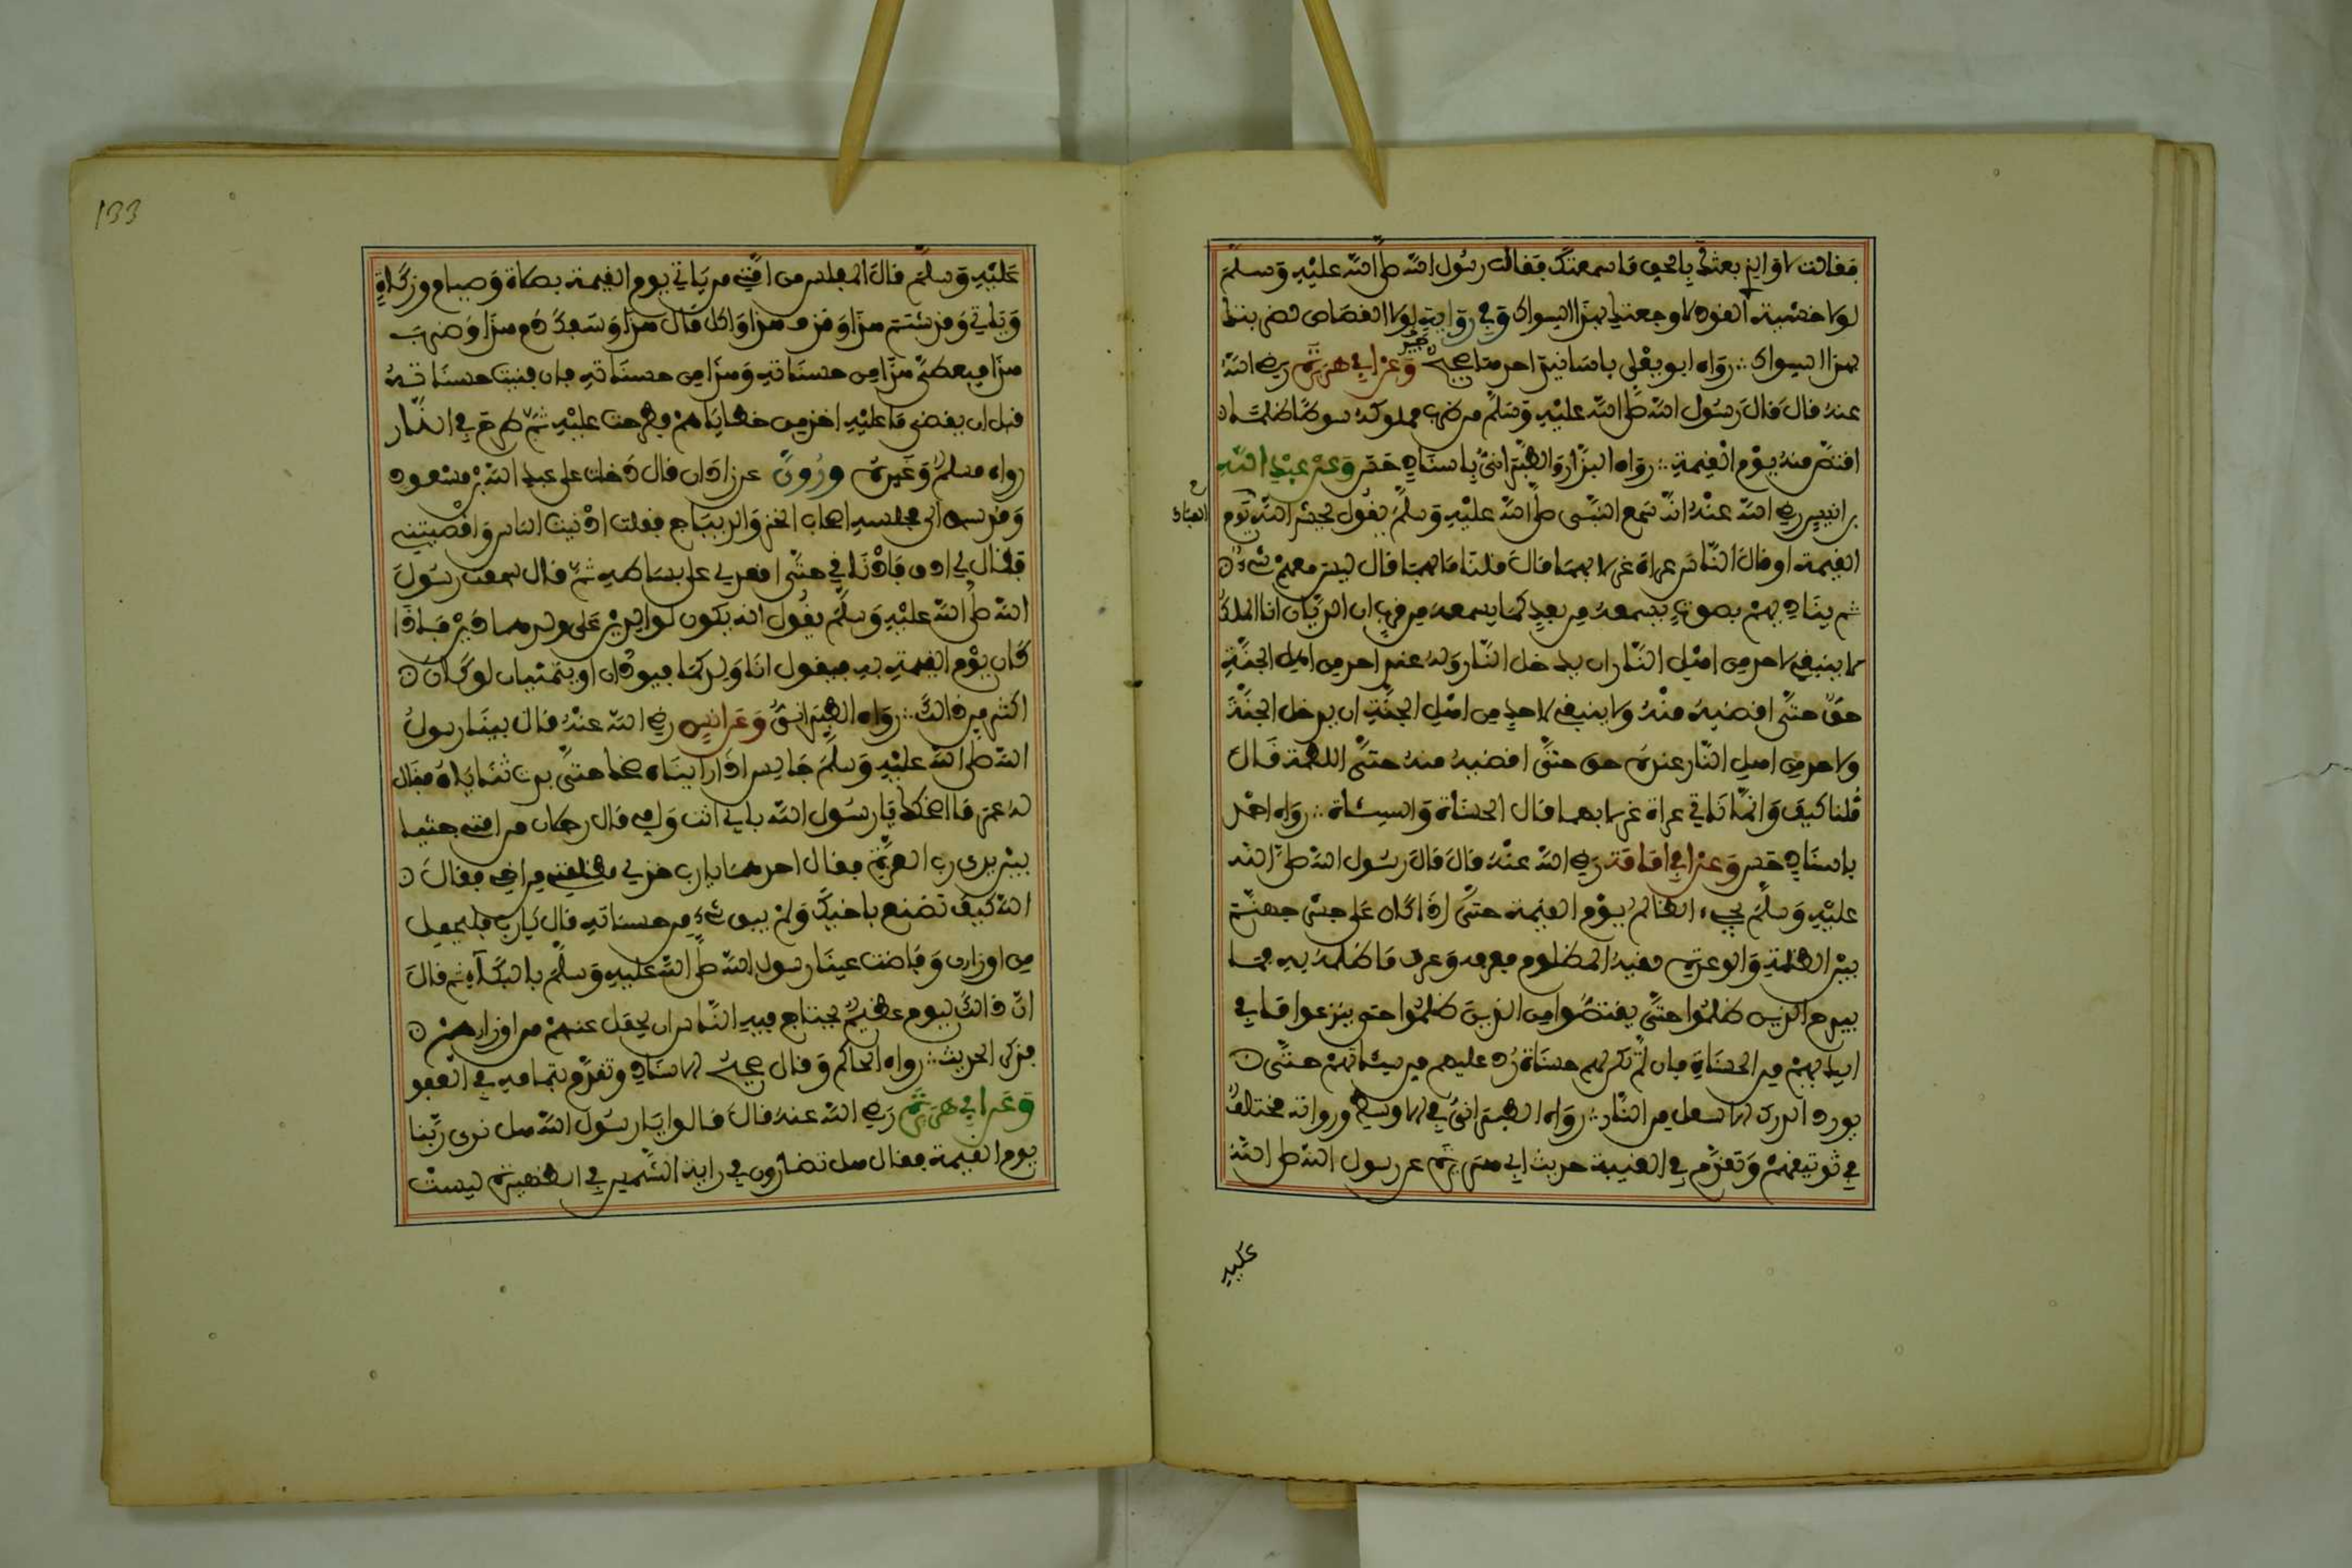 فقالت لا والذي بعثك بالحق ما سمعتك فقال رسول الله صلى الله عليه وسلم
لولا خشية القود لاوجعتك بهذا السواك وفي رواية لولا القصاص لضربتك
بهذا السواك رواه ابو يعلى باسانيد احدها جيد وعن ابي هريرة رضي الله
عنه قال قال رسول الله صلى الله عليه وسلم من ضرب مملوكه سوطا ظلما
اقتص منه يوم القيمة رواه البزار والطبراني باسناد حسن وعن عبد الله
بن انيس رضي الله عنه انه سمع النبي صلى الله عليه وسلم يقول يحشر الله يوم
العباد
القيمة او قال الناس عراة غرلا بهما قال قلنا ما بهما قال ليس معهم شيء
ثم يناديهم بصوت يسمعه من بعد كما يسمعه من قرب ان الديان انا الملك
لا ينبغي لاحد من اهل النار ان يدخل النار وله عند احد من اهل الجنة
حق حتى اقضيه منه ولا ينبغي لاحد من اهل الجنة ان يدخل الجنة
ولاحد من اهل النار عنده حق حتى اقضيه منه حتى اللطمة قال
قلنا كيف وانما ناتي عراة غرلا بهما قال الحسناة والسيئاة رواه احمد
باسناد حسن وعن ابي امامة رضي الله عنه قال قال رسول الله صلى الله
عليه وسلم يجيء الظالم يوم القيمة حتى اذا كان على جسر جهنم
بين الظلمة والوعرة لقيه المظلوم فعرفه وعرف ما ظلمه به فما
يبرح الذين ظلموا حتى يقتصوا من الذين ظلموا حتى ينزعوا ما في
ايديهم من الحسناة فان لم تكن لهم حسناة رد عليهم من سيئاتهم حتى
يورد الدرك الاسفل من النار رواه الطبراني في الاوسط ورواته مختلف
في توثيقهم وتقدم في الغيبة حديث ابي هريرة عن رسول الله صلى الله
عليه
133
عليه وسلم قال المفلس من امتي من ياتي يوم القيمة بصلاة وصيام وزكاة
وياتي وقد شتم هذا وقذف هذا واكل مال هذا وسفك دم هذا وضرب
هذا فيعطى هذا من حسناته وهذا من حسناته فان فنيت حسناته
قبل ان يقضى ما عليه اخذ من خطاياهم فطرحت عليه ثم طرح في النار
رواه مسلم وغيره وروي عن زاذان قال دخلت على عبد الله بن مسعود
وقد سبق الى مجلسه اصحاب الخز والديباج فقلت ادنيت الناس واقصيتني
فقال لي ادن فادناني حتى اقعدني على بساطه ثم قال سمعت رسول
الله صلى الله عليه وسلم يقول انه يكون للوالدين على ولدهما دين فاذا
كان يوم القيمة به فيقول انا ولدكما فيودان او يتمنيان لو كان
اكثر من ذلك رواه الطبراني وعن انس رضي الله عنه قال بينا رسول
الله صلى الله عليه وسلم جالس اذ رايناه ضحك حتى بدت ثناياه فقال
له عمر ما اضحكك يا رسول الله بابي انت وامي قال رجلان من امتي جثيا
بين يدي رب العزة فقال احدهما يارب خذ لي مظلمتي من اخي فقال
الله كيف تصنع باخيك ولم يبق شيء من حسناته قال يارب فليحمل
من اوزاري وفاضت عينا رسول الله صلى الله عليه وسلم بالبكاء ثم قال
ان ذلك ليوم عظيم يحتاج فيه الناس ان يحمل عنهم من اوزارهم
فذكر الحديث رواه الحاكم وقال صحيح الاسناد وتقدم بتمامه في العفو
وعن ابي هريرة رضي الله عنه قال قالوا يا رسول الله هل نرى ربنا
يوم القيمة فقال هل تضارون في راية الشمس في الظهيرة ليست